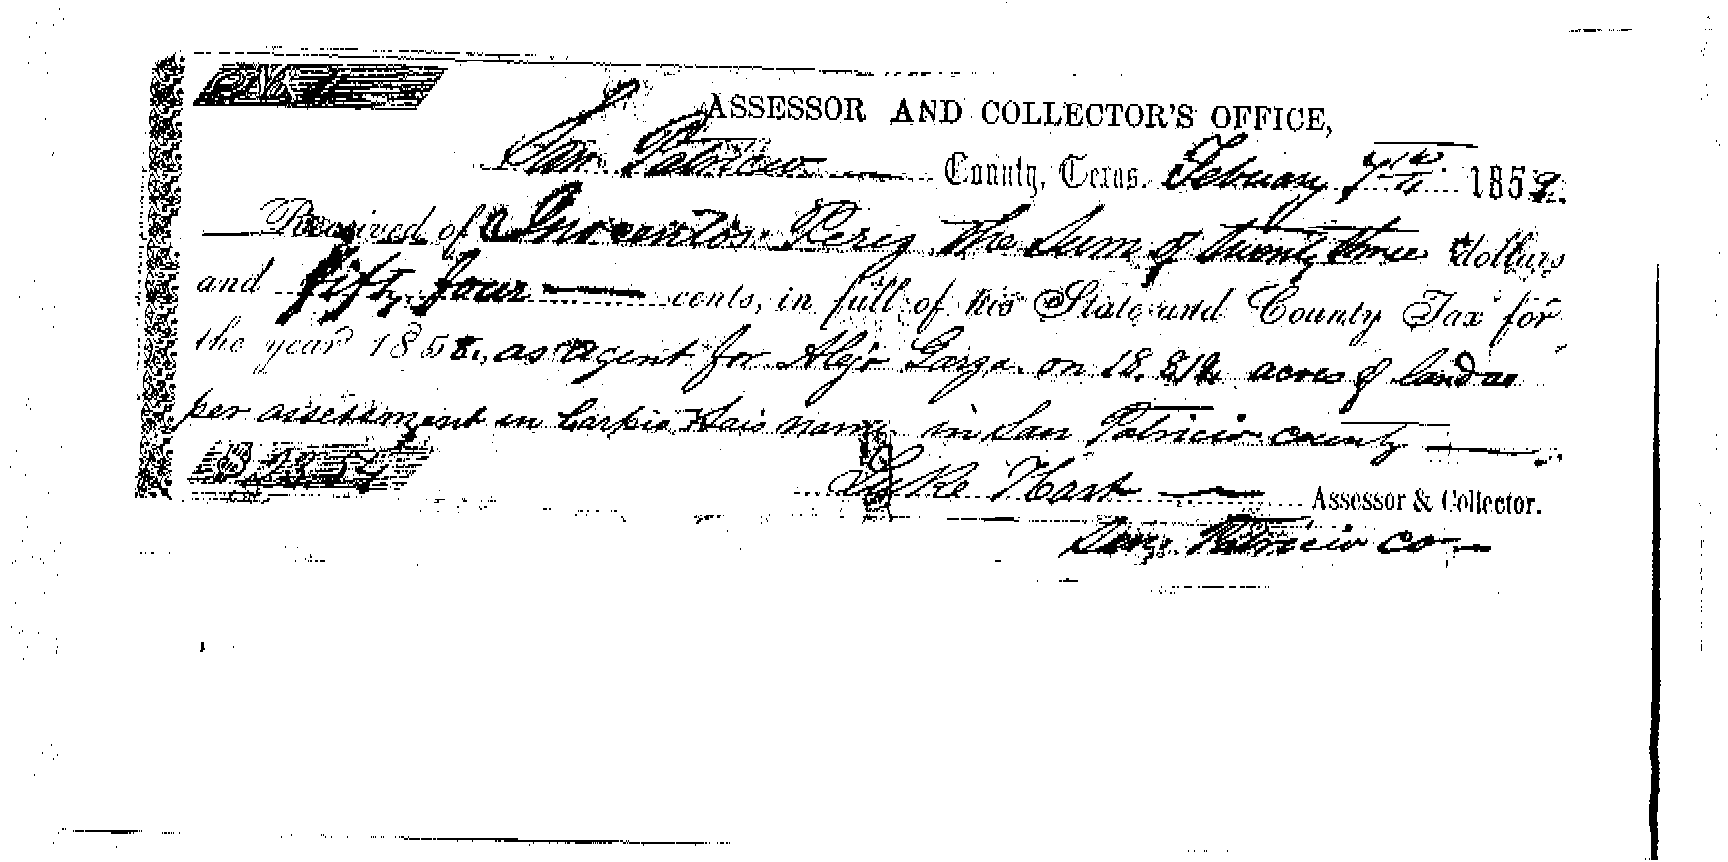 ASSESSOR AND COLLECTOR'S OFFICE,
San Patricio County, Texas. February 7th 1859.
Received of Inocentos Perez the sum of twenty three dollars
and fifty four cents, in full of his State and County Tax for
the year 1858, as agent for Alejo Garza. on 18.812 acres of land as
per assessment in name in San Patricio county
$ 23 54
Luke Hart Assessor & Collector.
San Patricio co